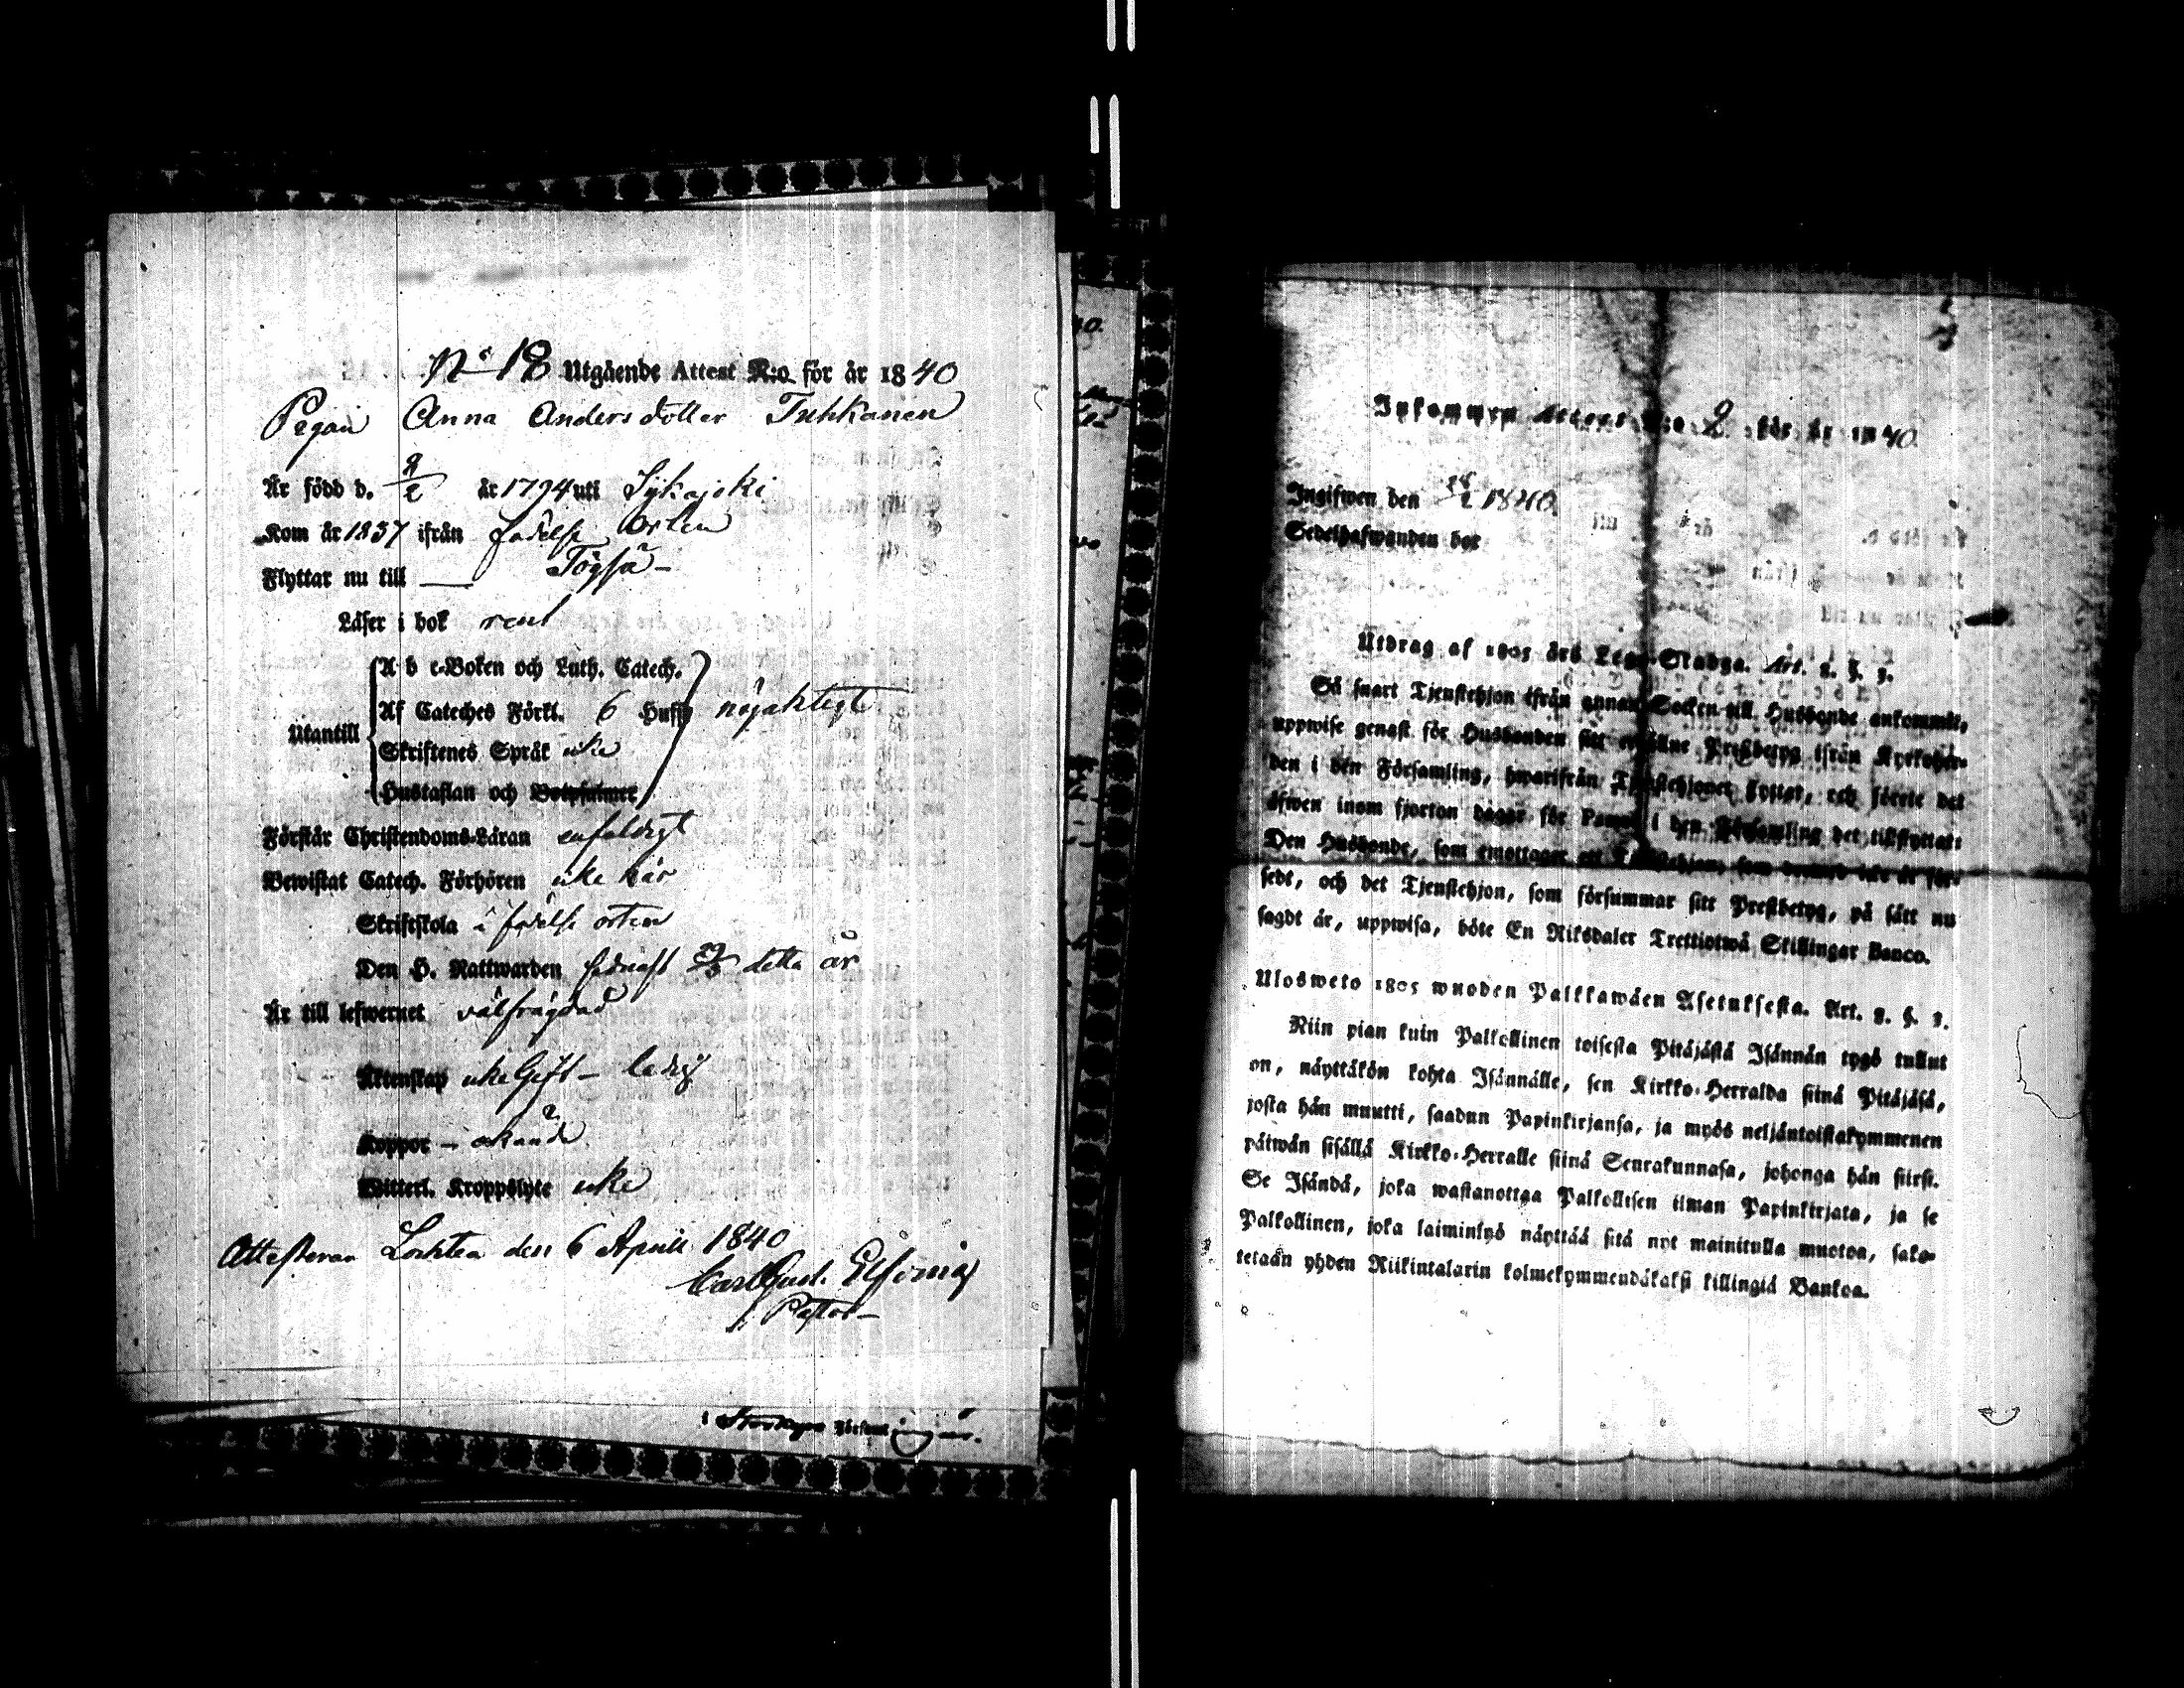 No 18 Utgående Attest N:o för år 1840
Pigan Anna Andersdotter Tuhkanen
Är född d. 9/2 år 1794 uti Sijkajoki
Kom år 1837 ifrån födelse orten
Flyttar nu till —
Läser i bok rent
A b c-Boken och Luth. Catech.
Af Cateches Förkl. 6 Hufs nöjaktigt
Utantill
Skriftenes Språk icke
Hustaflan och Botpsalmer
Förstår Christendoms-Läran enfaldigt
Bewistat Catech. Förhören icke här
Skriftskola i födelse orten
Den H. Nattwarden sednast detta år
Är till lefwernet välfrägdad
Äktenskap icke Gift – ledig
Koppor –
Witterl. Kroppslyte icke
Attesterar Lochtea den 6 April 1840
Carl Gust.
Pastor –
i
Inkommen Attest N:o 2 för år 1840
Ingifwen den 28/2 1840
Sedelhafwanden bor
Utdrag af 1805 års Lego-Stadga. Art. 2. §. 3.
Så snart Tjenstehjon ifrån annan Socken till Husbonde ankommit,
uppwise genast för Husbonden sitt erhållne Prestbetyg ifrån Kyrkoher-
den i den Församling, hwarifrån Tjenstehjonet flyttat, och förete det
äfwen inom fjorton dagar för i den Församling det tillflyttat:
Den Husbonde, som emottager ett Tjenstehjon, som
sedt, och det Tjenstehjon, som försummar sitt Prestbetyg, på sätt nu
sagdt är, uppwisa, böte En Riksdaler Trettiotwå Skillingar Banco.
Ulosweto 1805 wuoden Palkkawäen Asetuksesta. Art. 2. §. 3.
Niin pian kuin Palkollinen toisesta Pitäjästä Isännän tygö tullut
on, näyttäkön kohta Isännälle, sen Kirkko-Herralda siinä Pitäjäsä,
josta hän muutti, saadun Papinkirjansa, ja myös neljäntoistakymmenen
päiwän sisällä Kirkko-Herralle siinä Seurakunnasa, johonga hän siirsi.
Se Isändä, joka wastanottaa Palkollisen ilman Papinkirjata, ja se
Palkollinen, joka laiminlyö näyttää sitä nyt mainitulla muotoa, sako-
tetaan yhden Riikintalarin kolmekymmendäkaksi killingiä Bankoa.